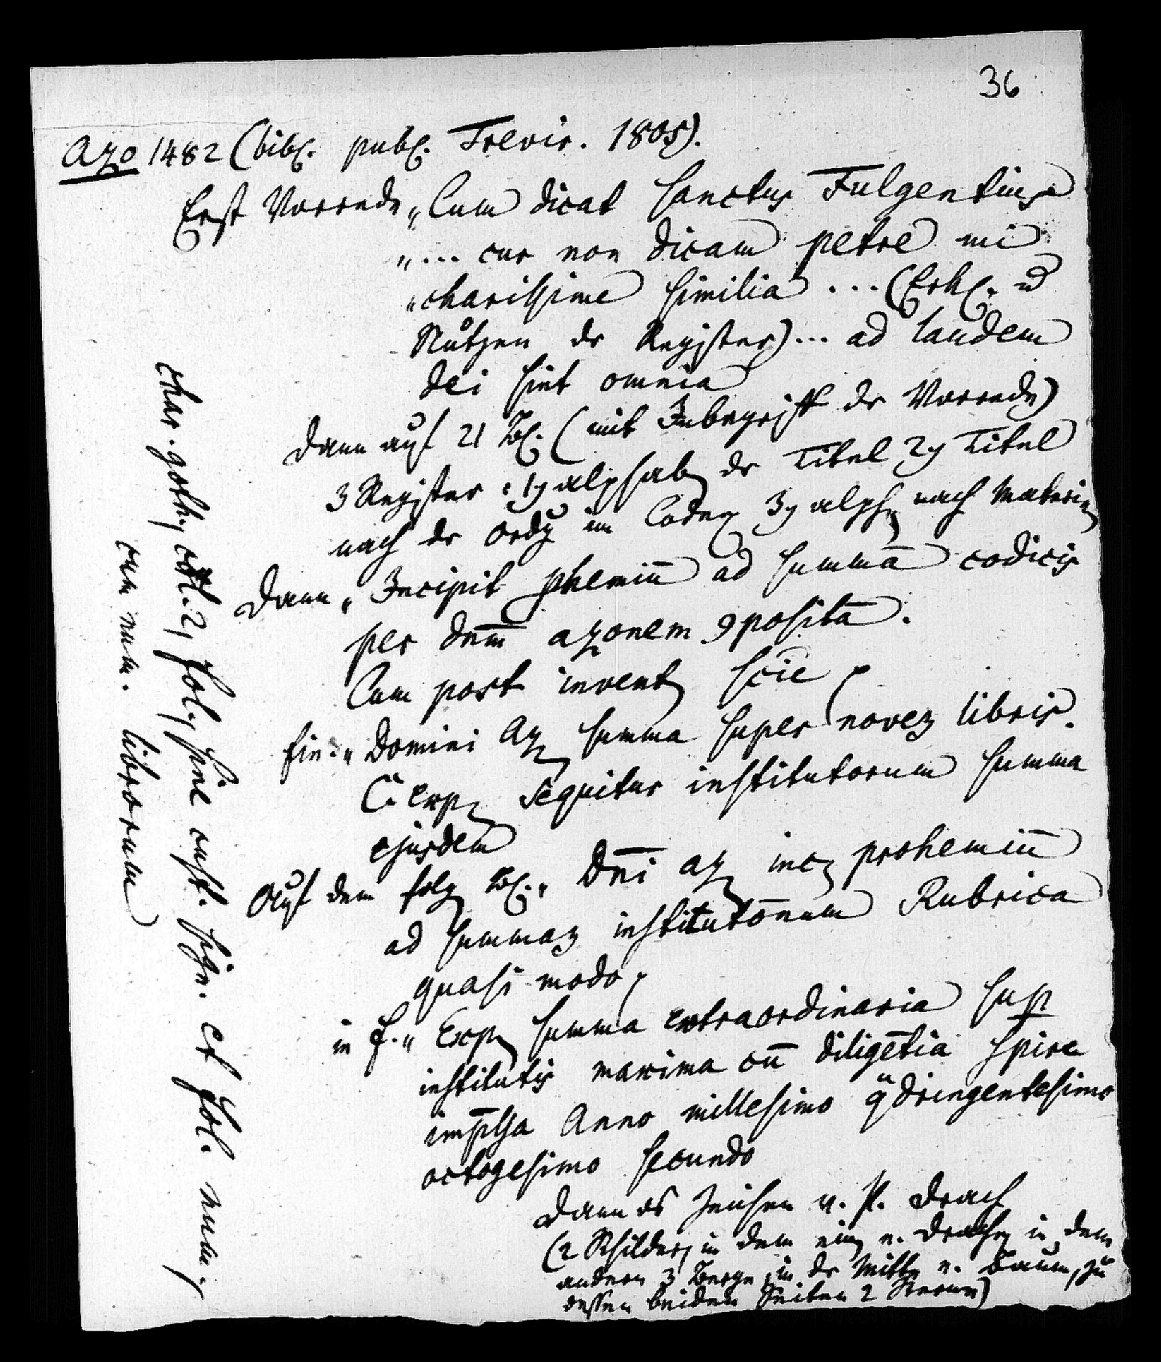 36
Azo 1482 (bibl. publ. Trevir. 1805).
Erst Vorrede „Cum dicat sanctus Fulgentius
„... cur non dicam petre mi
„charissime similia ... (Erkl. u
Nutzen der Register) ... ad laudem
dei sint omnia
Dann auf 21 Bl. (mit Inbegriff der Vorrede)
3 Register: 1) alphab der Titel 2) Titel
nach der Ordg im Codex 3) alph nach Materien
Dann „Incipit phemiū ad summā codicis
per dnm azonem 9posita.
Cum post invent scie
fin: „Domini Az summa super novez libris.
C. exp Sequitur institutorum summa
ejusdem
Auf dem folg Bl. „Dni az inc prohemiū
ad summaz institutōnum Rubrica
quasi modo
in f. „Exp summa extraordinaria sup
institutis maxima cū diligētia spire
imp̄ssa Anno millesimo qdringentesimo
octogesimo secundo
Dann das Zeichen v. P. Drach
(2 Schilder, in dem ein e. Drache, in dem
andern 3 Berge, in der Mitte e. Baum, zu
dessen beiden Seiten 2 Sterne)
char. goth, col. 2, fol, sine cust. sign. et fol. num,
cum num. librorum